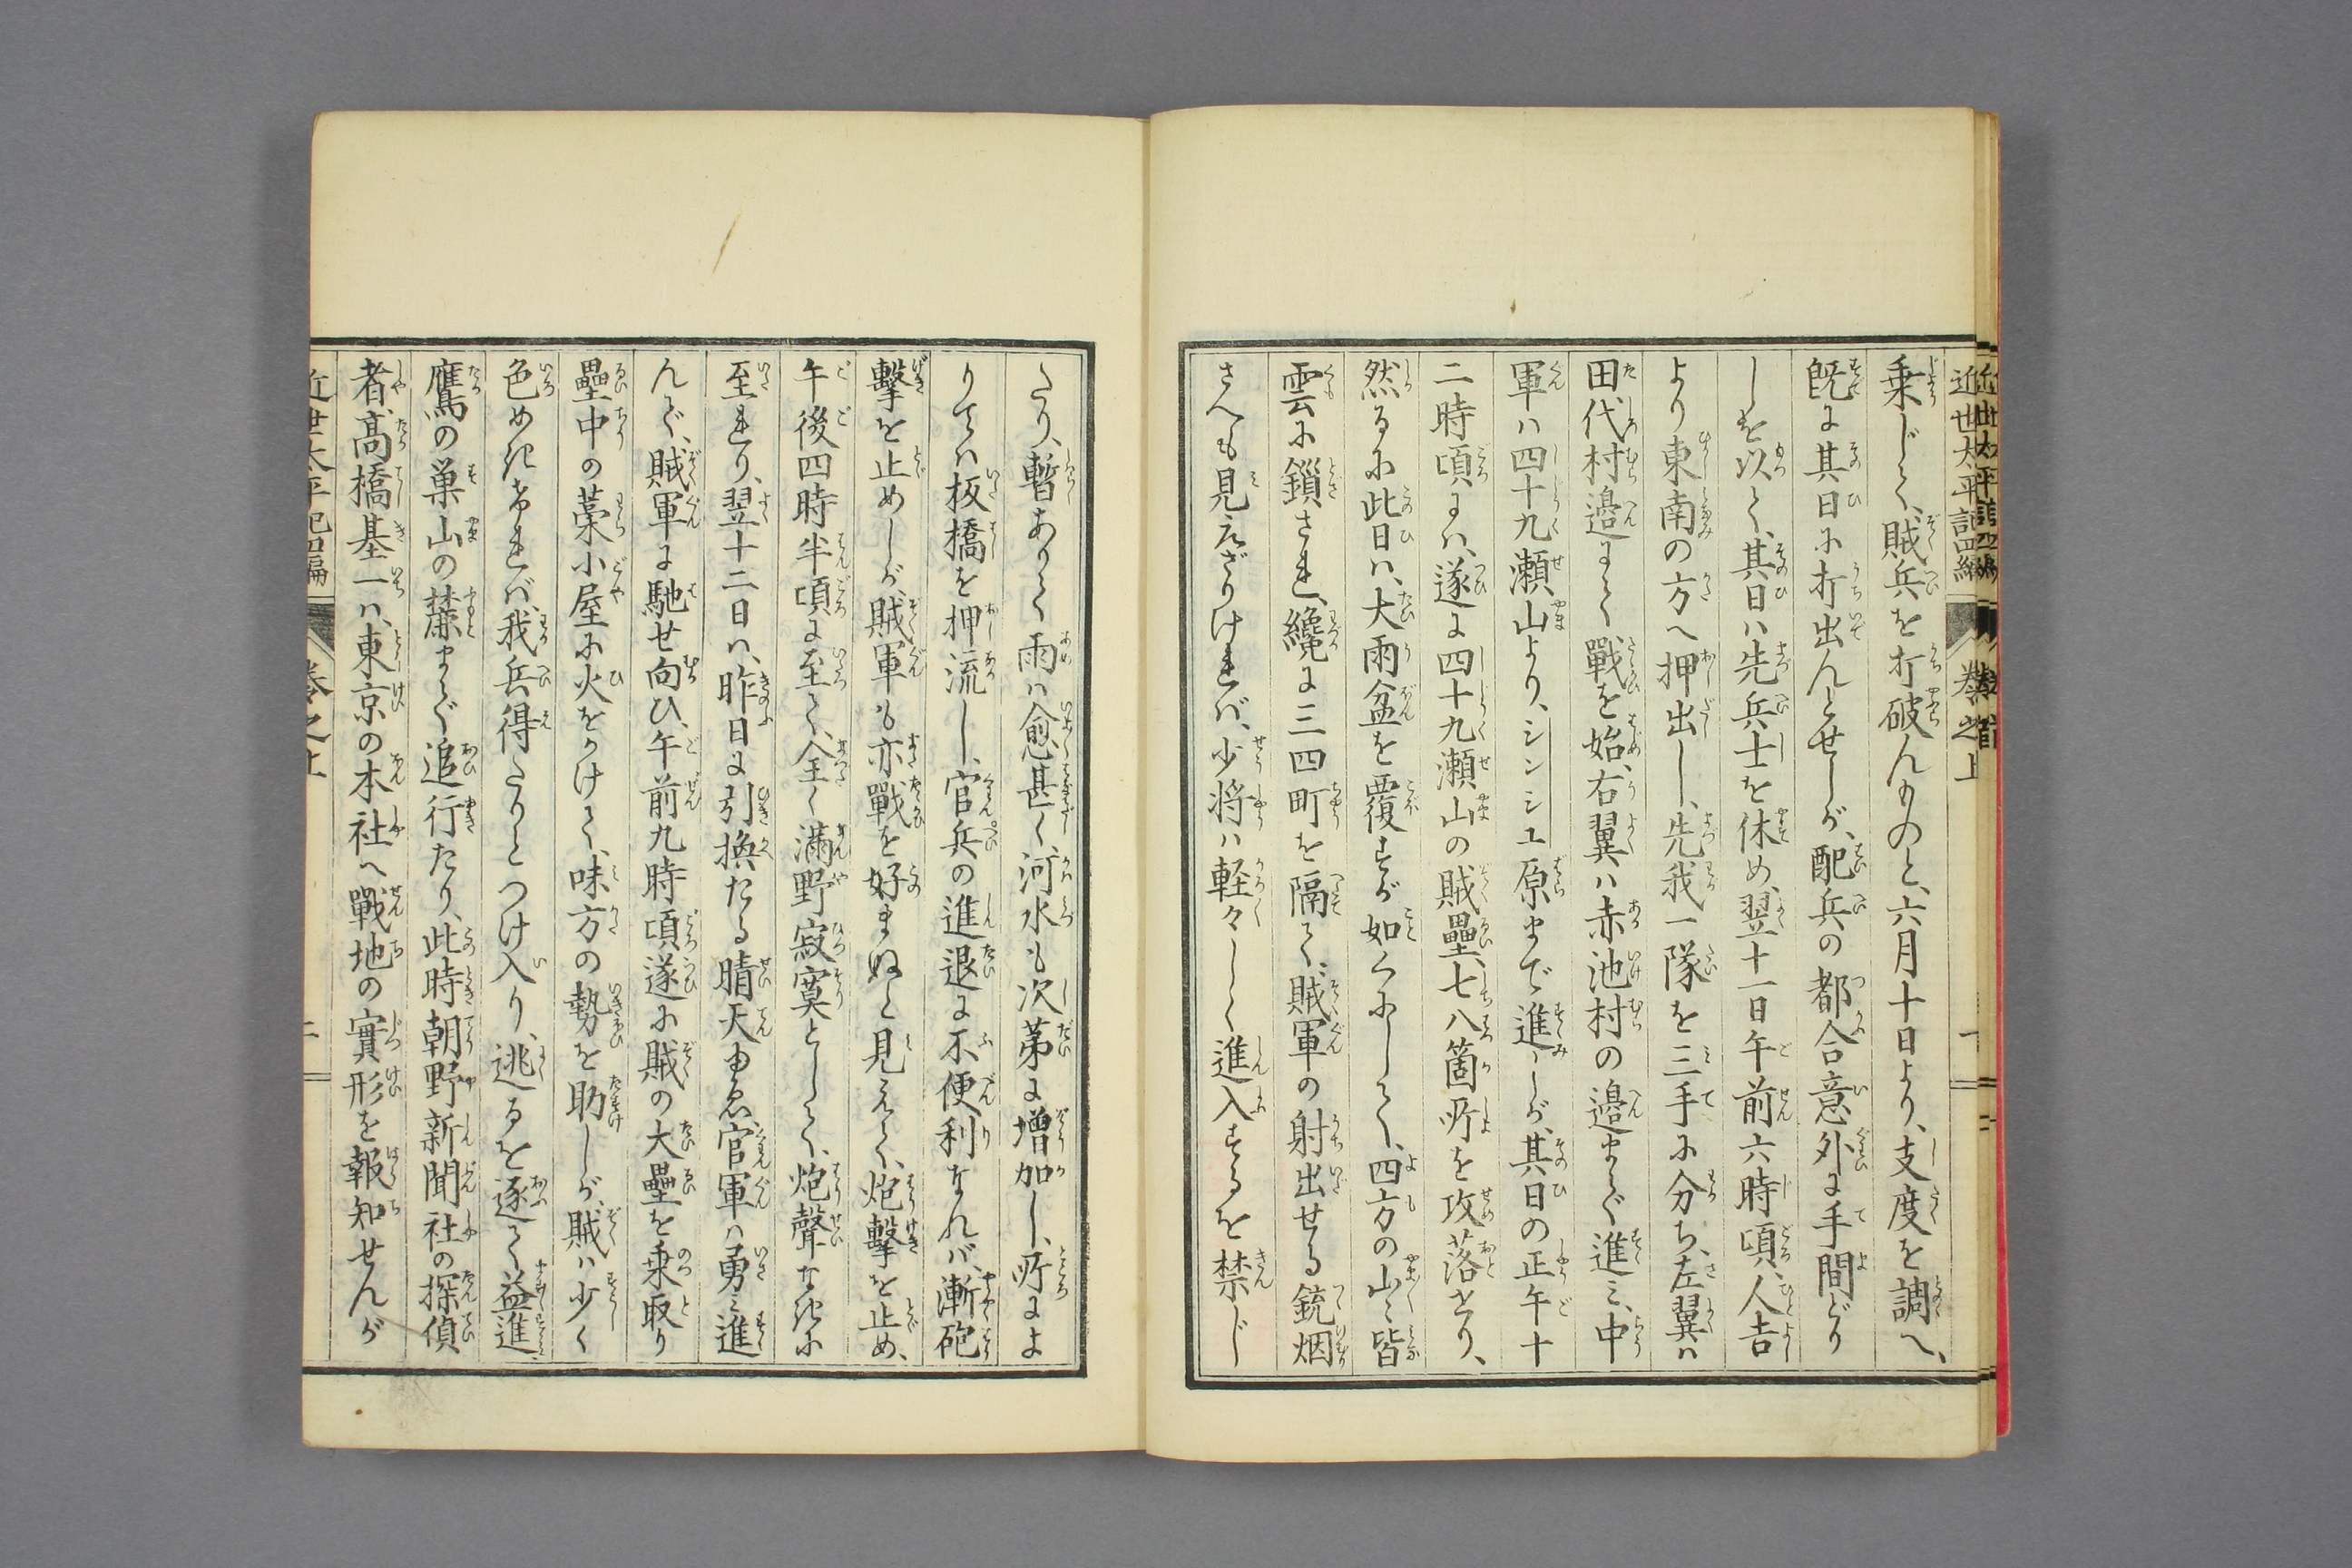 近世太平記四編 巻之上 一
乗じて、賊兵を打破んものと、六月十日より、支度を調へ、
既に其日に打出んとせしが、配兵の都合意外に手間どり
しを以て、其日ハ先兵士を休め、翌十一日午前六時頃、人吉
より東南の方へ押出し、先我一隊を三手に分ち、左翼ハ
田代村邉にて戰を始、右翼ハ赤池村の邉まで進ミ、中
軍ハ四十九瀬山より、シンシユ原まで進ミしが、其日の正午十
二時頃にハ、遂に四十九瀬山の賊壘、七八箇所を攻落せり、
然るに此日ハ、大雨盆を覆すが如くにして、四方の山々皆
雲に鎖され、纔に三四町を隔て、賊軍の射出せる銃烟
さへも見えざりけれバ、少将ハ軽々しく進入するを禁じ
たり、暫ありて雨ハ愈甚く、河水も次第に増加し、所によ
りてハ板橋を押流し、官兵の進退に不便利なれバ、漸砲
撃を止めしが、賊軍も亦戰を好まぬと見えて、炮撃を止め、
午後四時半頃に至て、全く滿野寂寞として、炮聲なきに
至れり、翌十二日ハ、昨日に引換たる晴天ゆゑ、官軍ハ勇ミ進
んで、賊軍に馳せ向ひ、午前九時頃遂に賊の大壘を乗取り
壘中の藁小屋に火をかけて、味方の勢を助しが、賊ハ少く
色めきけれバ、我兵得たりとつけ入り、逃るを逐て益進ミ、
鷹の巣山の麓まで追行たり、此時朝野新聞社の探偵
者、高橋基一ハ、東京の本社へ戰地の實形を報知せんが
近世太平記四編 巻之上 二